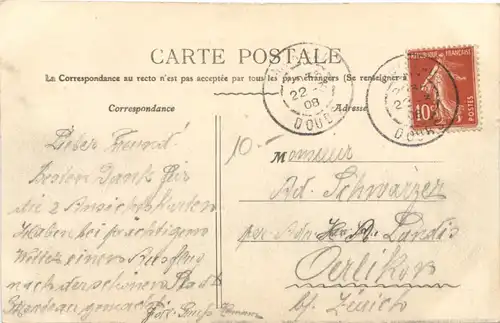 CARTE POSTALE
La Correspondance au recto n'est pas acceptée par tous les pays étrangers (Se renseigner à
Correspondance
Adresse
RÉPUBLIQUE FRANÇAISE
10c
POSTES
22
08
DOUBS
DOUBS
10.-
Lieber Freund!
Besten Dank für
die 2 Ansichtskarten
Haben bei prächtigem
Wetter einen Ausflug
nach der schönen Stadt
gemacht
Monsieur
Ad. Schwarzer
per Adr. Landis
Oerlikon
bf. Zürich